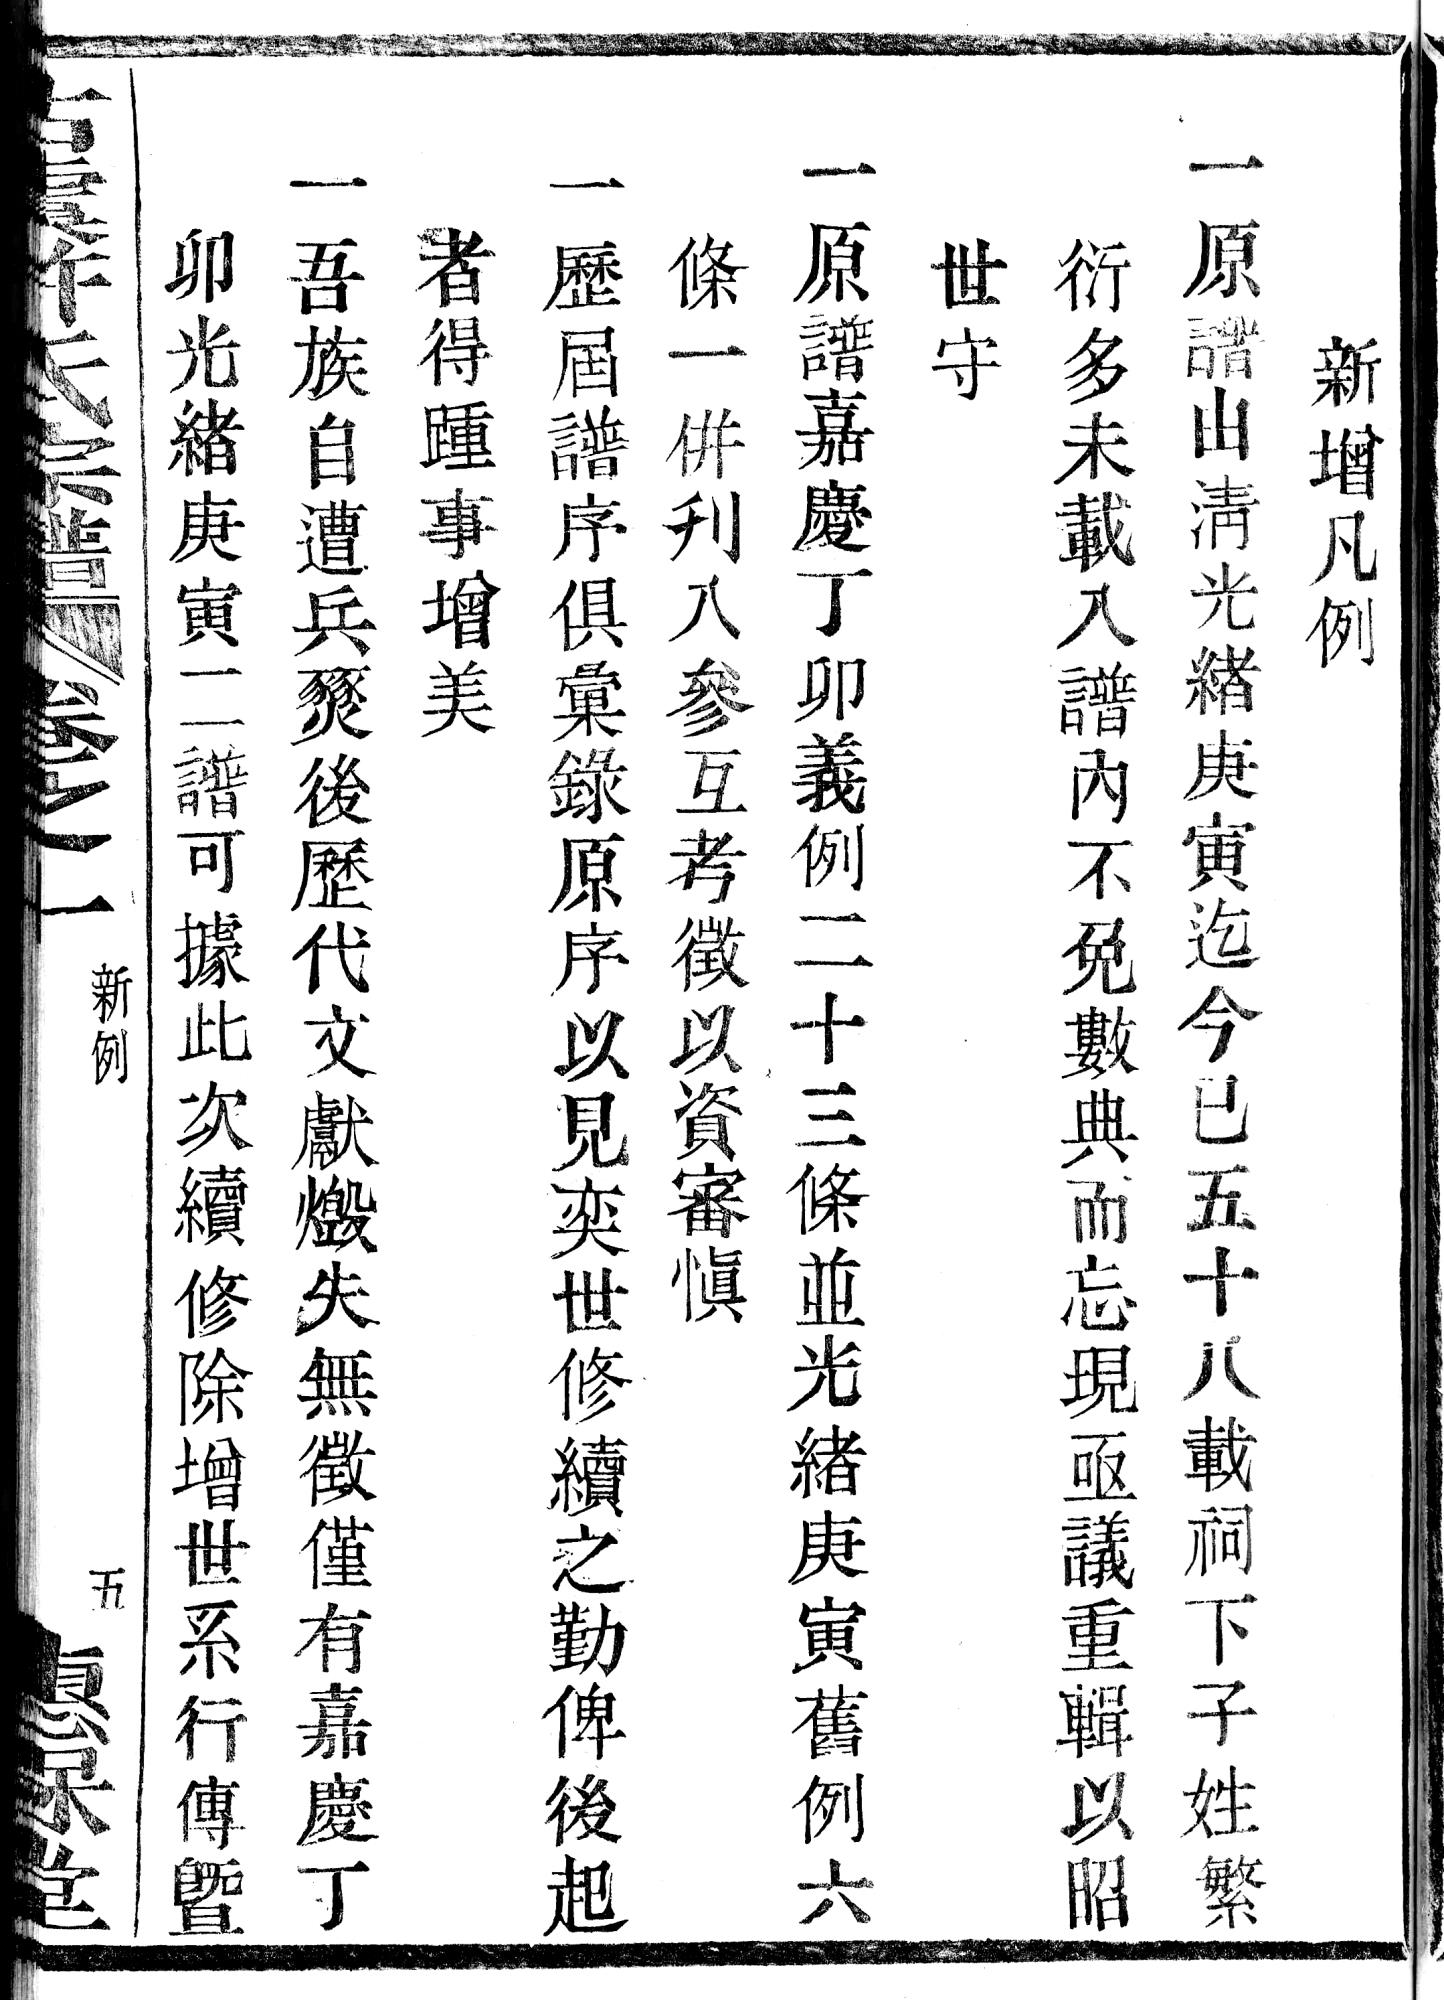 新增凡例
一原譜出淸光緒庚寅迄今已五十八載祠下子姓繁
衍多未載入譜內不免數典而忘現亟議重輯以昭
世守
一原譜嘉慶丁卯義例二十三條並光緒庚寅舊例六
條一併刋入參互考徵以資審愼
一歷屆譜序俱彙錄原序以見奕世修續之勤俾後起
者得踵事增美
一吾族自遭兵燹後歷代文獻燬失無徵僅有嘉慶丁
卯光緒庚寅二譜可據此次續修除增世系行傳暨
氏宗譜 卷之一 新例 五